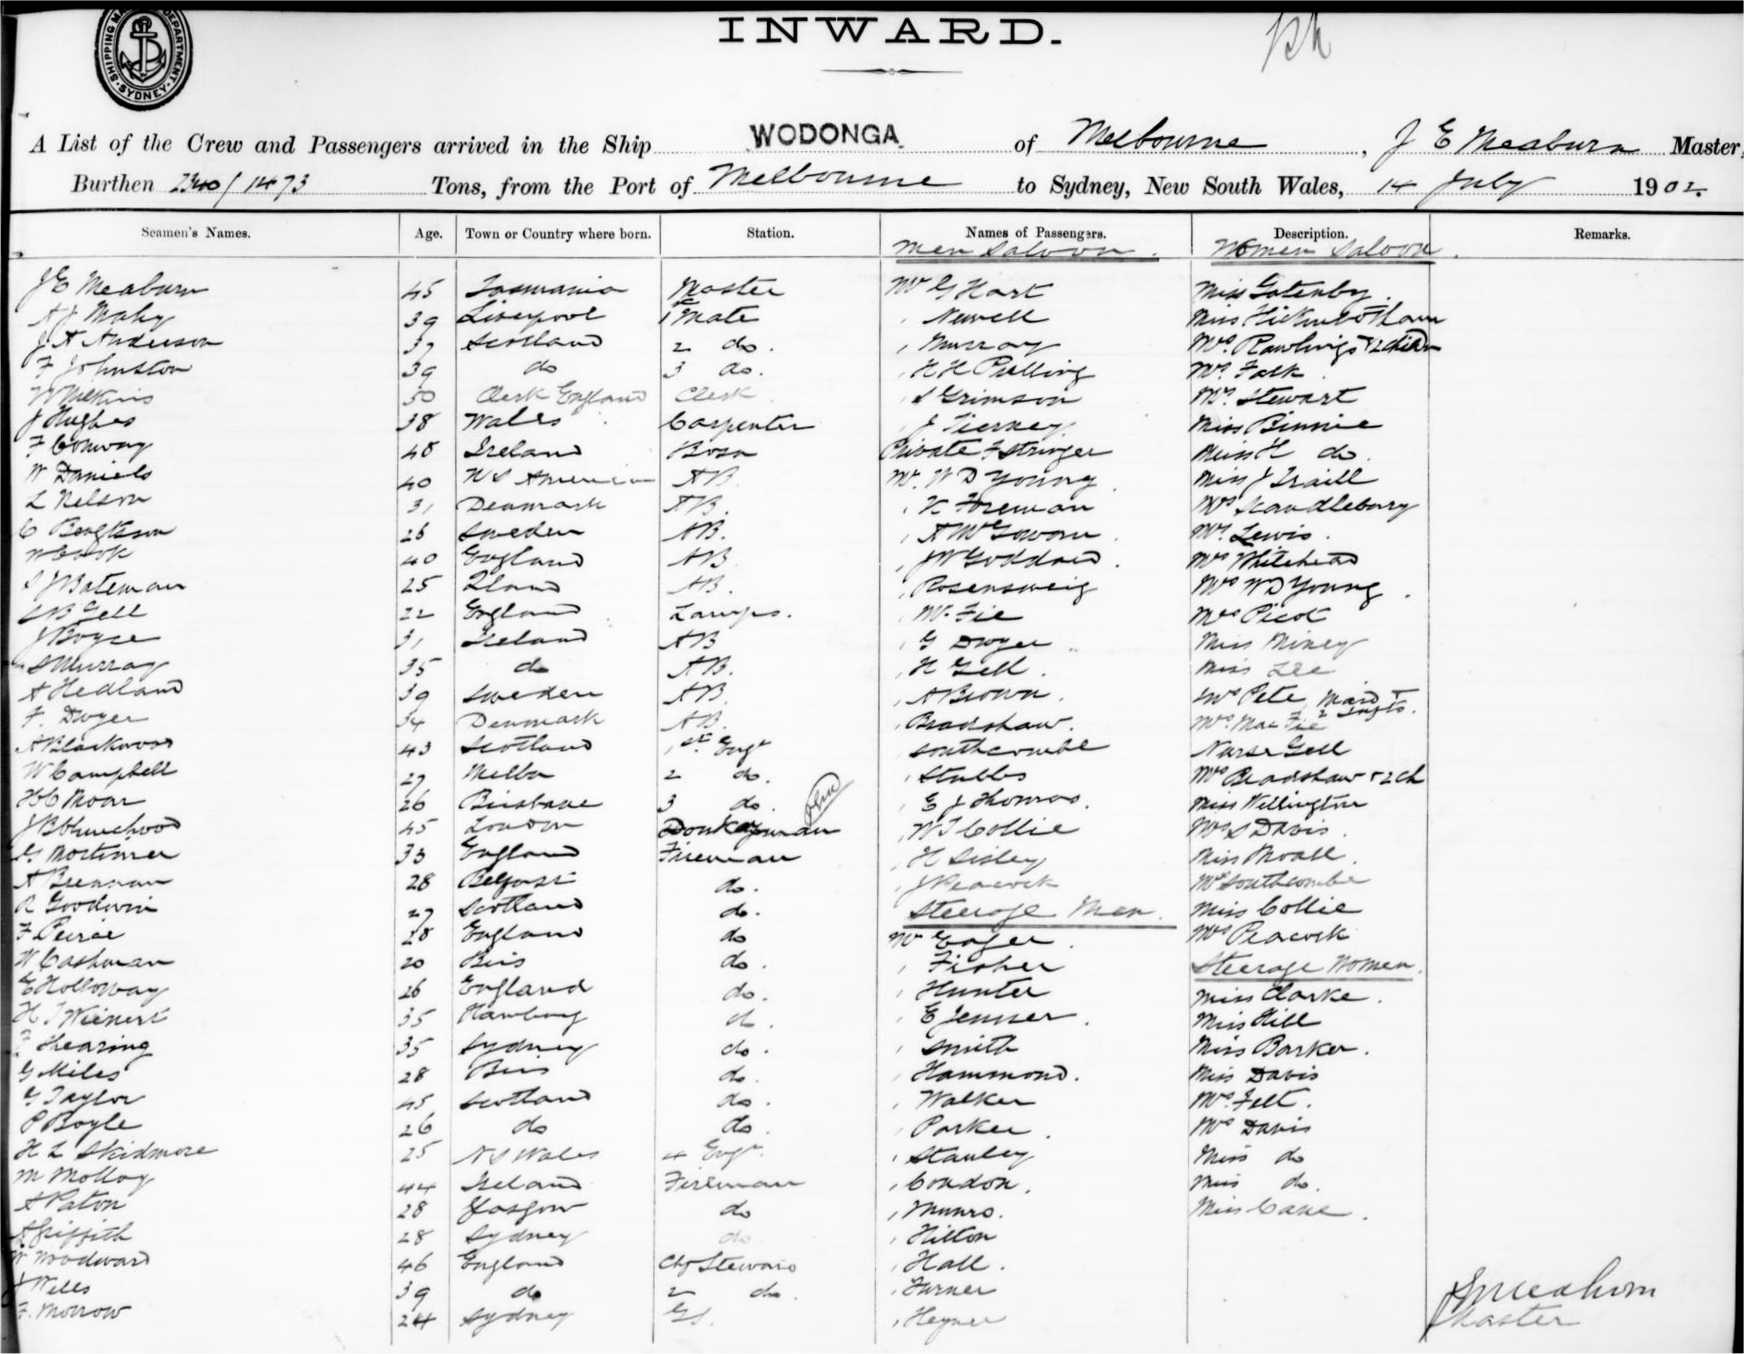 SHIPPING MASTER'S DEPARTMENT SYDNEY
INWARD.
A List of the Crew and Passengers arrived in the Ship WODONGA of Melbourne, J E Meaburn Master,
Burthen 2340/1473 Tons, from the Port of Melbourne to Sydney, New South Wales, 14 July 1902.
Seamen's Names. Age. Town or Country where born. Station. Names of Passengers. Description. Remarks.
Men Saloon. Women Saloon.
J E Meaburn 45 Tasmania Master Mr G Hart Miss Gatenby.
A J Mahy 39 Liverpool 1 Mate " Newell Miss Hickinbotham
J A Anderson 37 Scotland 2 do. " Murray Mrs Rawlings + 2 child
F Johnston 39 do 3 do. " H H Pulling Mrs Falk
50 Clerk England Clerk " S Grimson Mrs Stewart
J Hughes 38 Wales Carpenter " J Tierney Miss Binnie
F Conway 48 Ireland Bosn Private F Stringer Miss H do.
W Daniels 40 AB. Mr. W D Young Miss J Traill
L Nelson 31 Denmark AB. " K Foreman Mrs Scandlebury
C 26 Sweden AB. " A McGowan Mrs Lewis.
W Cook 40 England AB " J W Goddard. Mrs Whitehead
J Bateman 25 AB. " Rosensweig Mrs W D Young.
Gell 22 England Lamps. " Mc Fie Mrs Picot
J Boyce 31 Ireland AB " G Dwyer Miss Miney
S Murray 35 do AB. " H Gell. Miss Lee
A Hedland 39 Sweden AB. " A Brown. Mrs Pete, Maid +
F. Dwyer 34 Denmark AB. " Bradshaw. Mrs Mac Fie 2 Infts.
A Blackwood 43 Scotland 1st Engr " Southcombe Nurse Gell
W Campbell 27 Melbn 2 do. " Stubbs Mrs Bradshaw + 2 ch
H C Moar 26 Brisbane 3 do. " E J Thomas. Miss Wellington
45 London Donkeyman " W J Collie Mrs S Davis.
G Mortimer 33 England Fireman " H Sisley Miss Moall.
A Brennan 28 Belfast do. " J Peacock Mrs Southcombe
R Goodwin 27 Scotland do. Steerage Men. Miss Collie
F Peirce 28 England do Mr Eager. Mrs Peacock
W Cashman 20 Bris do. " Fisher Steerage Women.
E Holloway 26 England do. " Hunter Miss Clarke.
H J Wienert 35 Hamburg do. " E Jenner. Miss Hill
F Shearing 35 Sydney do. " Smith Miss Barker.
G Miles 28 Bris do. " Hammond. Miss Davis
G Taylor 45 Scotland do. " Walker Mrs Felt.
P Boyle 26 do do. " Parker. Mrs Davis
H L Skidmore 25 N S Wales 4 Engr. " Stanley Miss do
M Molloy 44 Ireland Fireman " Condon. Miss do.
A Paton 28 Glasgow do " Munro. Miss Cane.
A Griffith 28 Sydney do " Hilton
W Woodward 46 England Chf Steward " Hall.
J Wells 39 do 2 do. " Turner
F. Morrow 24 Sydney GS. " Heyner
J E Meaburn
Master